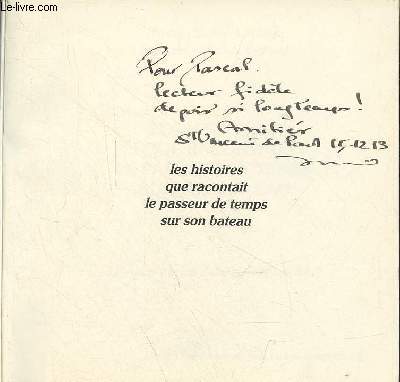 Le-livre.com
Pour Pascal.
lecteur fidèle
depuis si longtemps !
Amitiés
St Vincent de Paul 15.12.13
les histoires
que racontait
le passeur de temps
sur son bateau